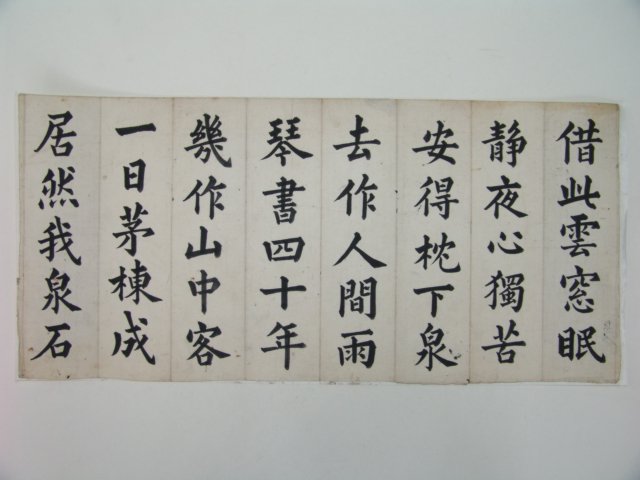 借此雲窓眠
静夜心獨苦
安得枕下泉
去作人間雨
琴書四十年
幾作山中客
一日茅棟成
居然我泉石